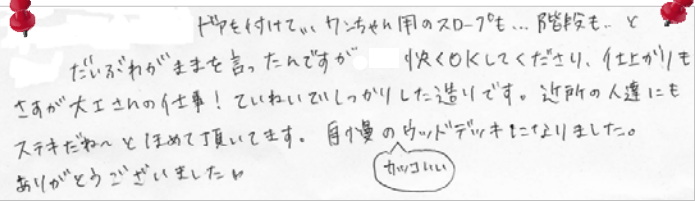 ドアを付けて、、ワンちゃん用のスロープも…階段も‥と
だいぶわがままを言ったんですが 快くOKしてくださり、仕上がりも
さすが大工さんの仕事！ていねいでしっかりした造りです。近所の人達にも
ステキだね〜とほめて頂いてます。自慢のウッドデッキになりました。
カッコいい
ありがとうございました